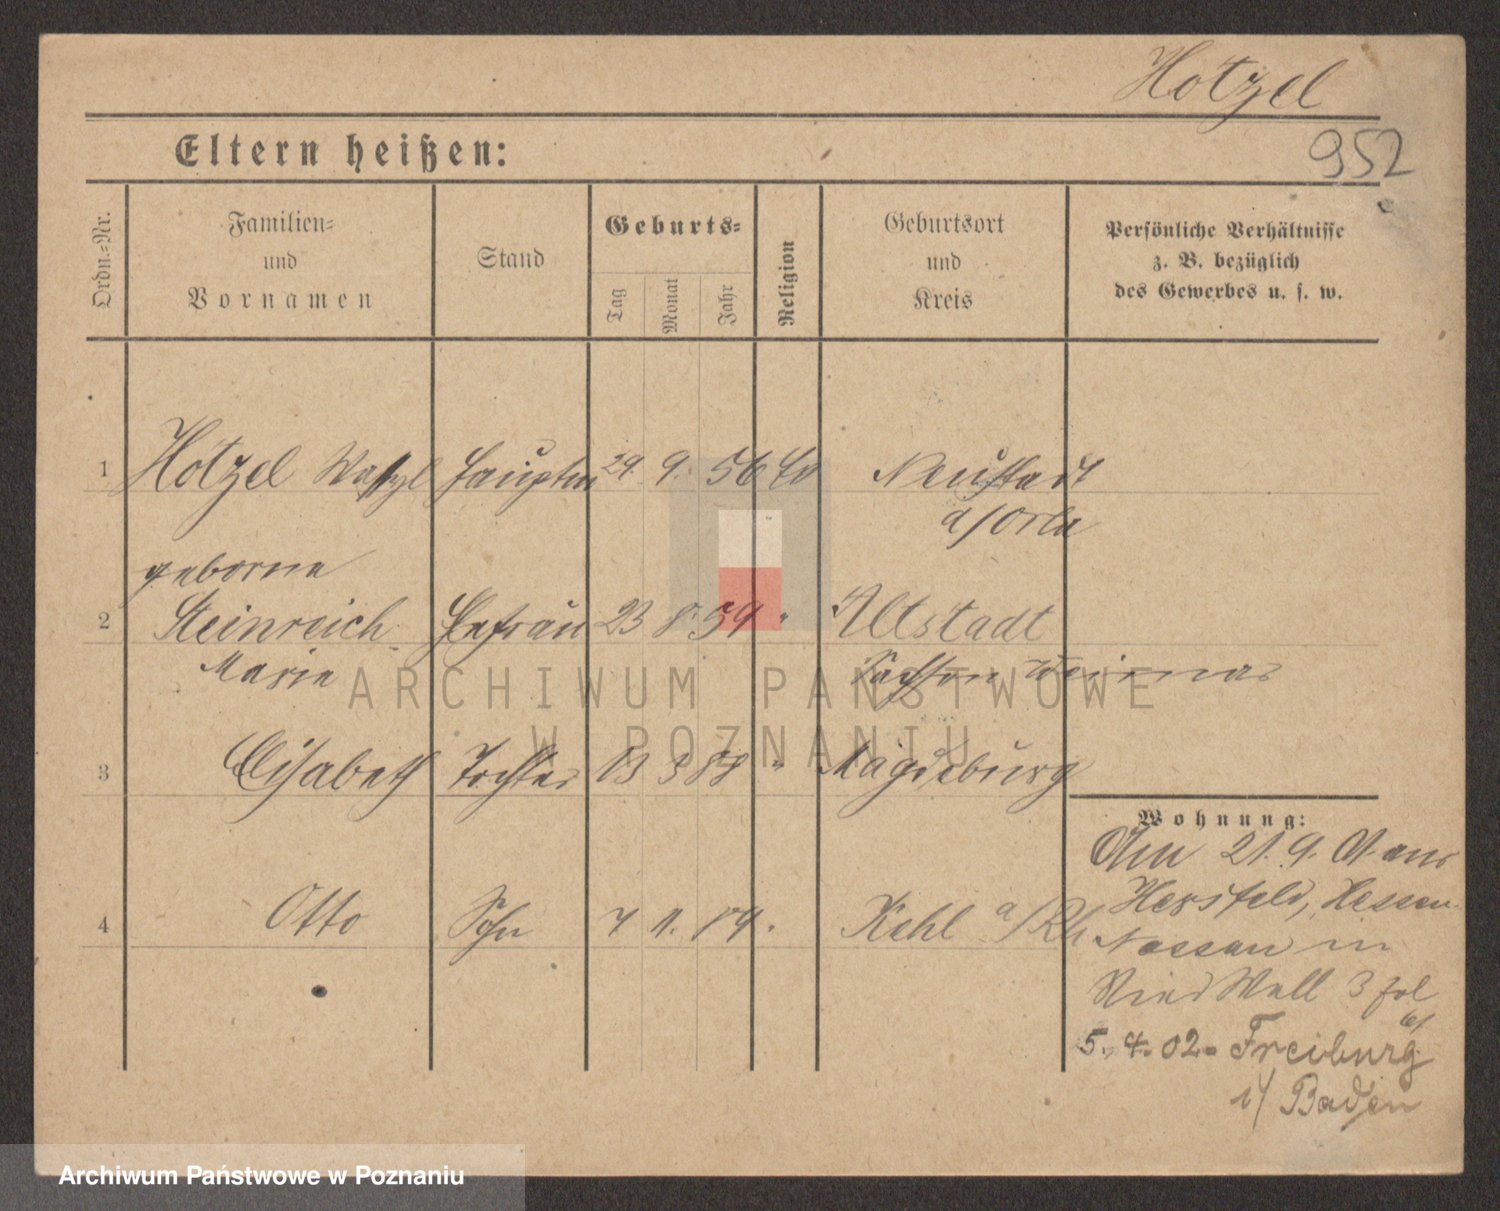 Hotzel
952
Eltern heißen:
Ordn.=Nr.
Familien=
und
Vornamen
Stand
Geburts=
Tag
Monat
Jahr
Religion
Geburtsort
und
Kreis
Persönliche Verhältnisse
z. B. bezüglich
des Gewerbes u. s. w.
1 Hotzel Hauptm 29. 9. 56 Neustadt
a/Orla
geborne
2 Steinreich Ehefrau 23 8. 59 " Altstadt
Marie Sachsen Weimar
3 Elisabeth Tochter 13 3 88 " Magdeburg
4 Otto Sohn 7 1. Kehl a/Rh
Wohnung:
Am 21. 9. 01 aus
Hersfeld, Hessen
Nassau in
Wall 3
5. 4. 02. Freiburg
i/ Baden
ARCHIWUM PAŃSTWOWE
W POZNANIU
Archiwum Państwowe w Poznaniu